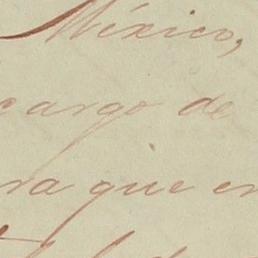 México,
cargo de
ra que en